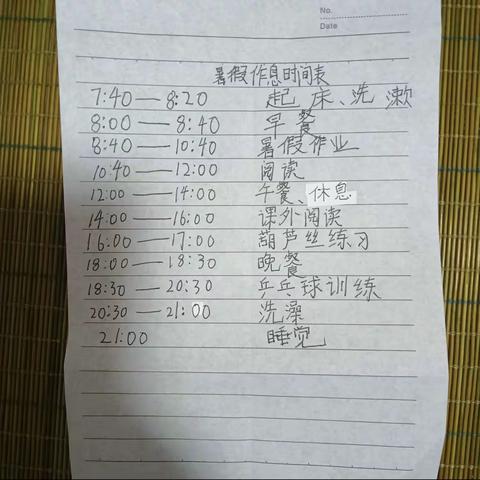 No.
Date
暑假作息时间表
7:40——8:20 起床、洗漱
8:00——8:40 早餐
8:40——10:40 暑假作业
10:40——12:00 阅读
12:00——14:00 午餐、休息
14:00——16:00 课外阅读
16:00——17:00 葫芦丝练习
18:00——18:30 晚餐
18:30——20:30 乒乓球训练
20:30——21:00 洗澡
21:00 睡觉